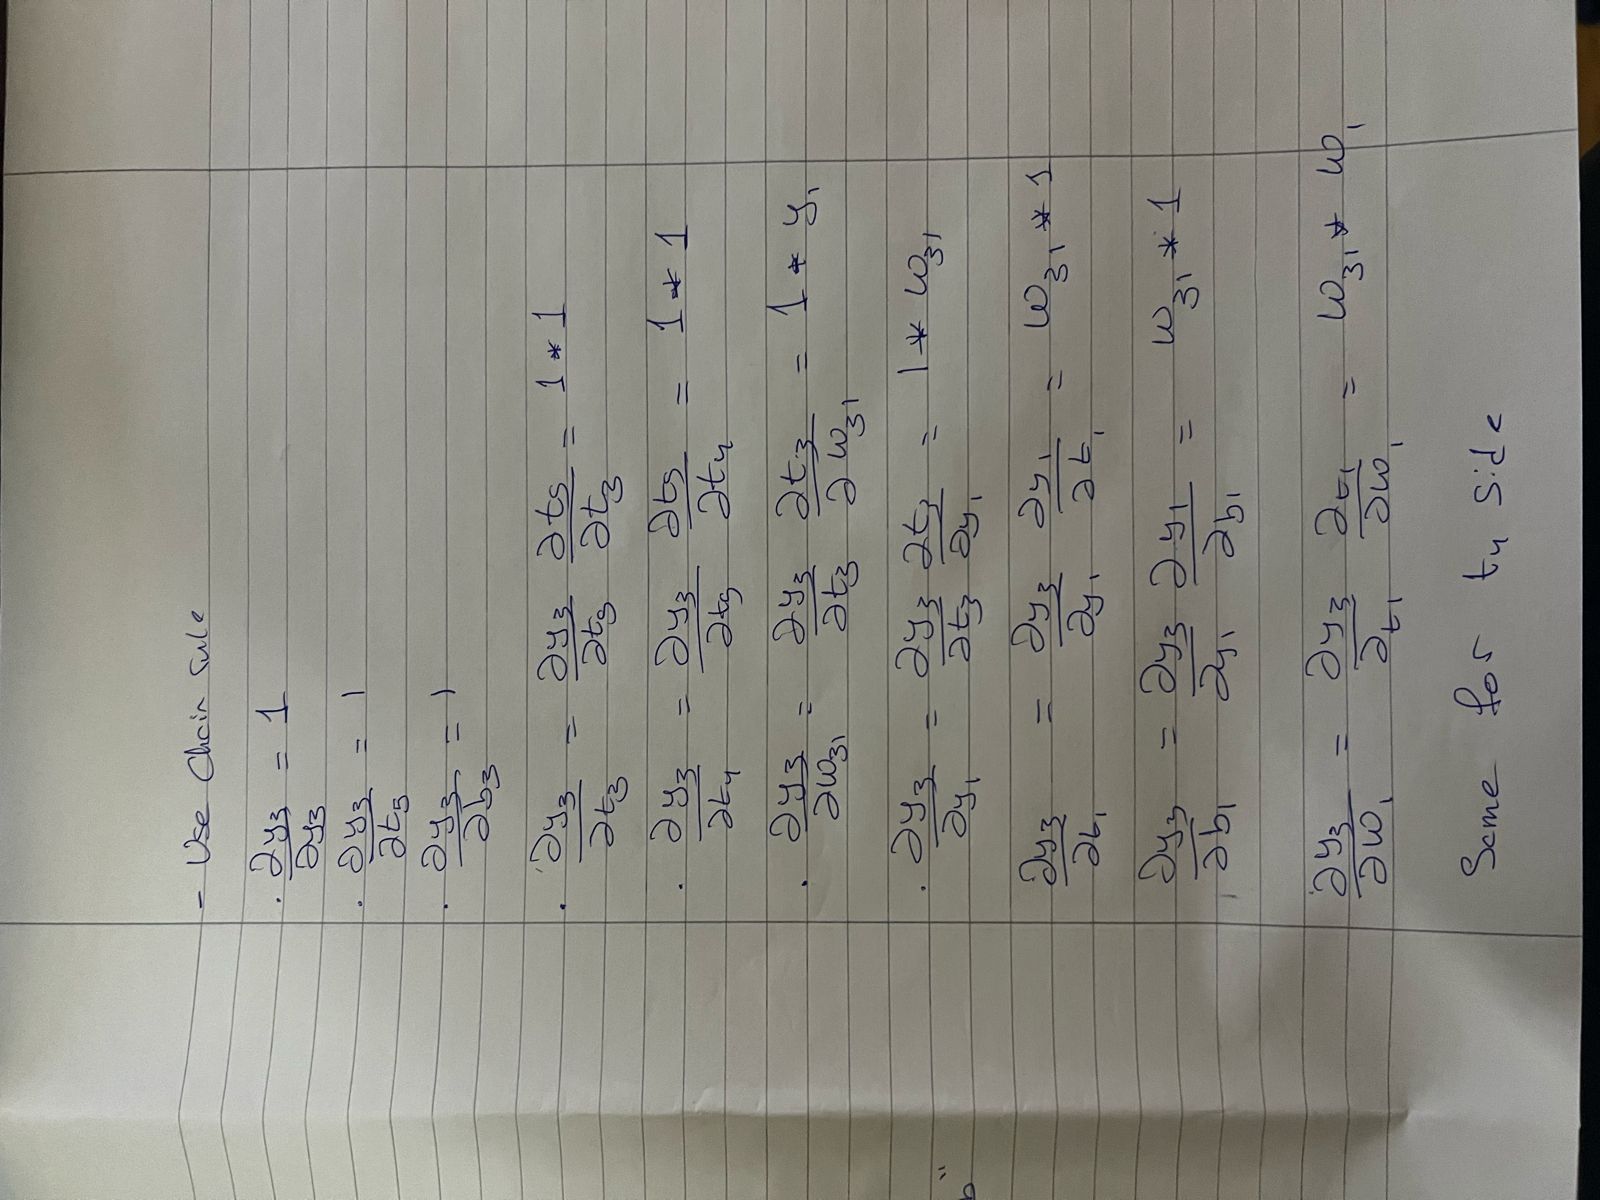 - Use Chain rule
. ∂y₃/∂y₃ = 1
. ∂y₃/∂t₅ = 1
. ∂y₃/∂b₃ = 1
. ∂y₃/∂t₃ = ∂y₃/∂t₅ ∂t₅/∂t₃ = 1 * 1
. ∂y₃/∂t₄ = ∂y₃/∂t₅ ∂t₅/∂t₄ = 1 * 1
. ∂y₃/∂w₃₁ = ∂y₃/∂t₃ ∂t₃/∂w₃₁ = 1 * y₁
. ∂y₃/∂y₁ = ∂y₃/∂t₃ ∂t₃/∂y₁ = 1 * w₃₁
∂y₃/∂t₁ = ∂y₃/∂y₁ ∂y₁/∂t₁ = w₃₁ * 1
∂y₃/∂b₁ = ∂y₃/∂y₁ ∂y₁/∂b₁ = w₃₁ * 1
∂y₃/∂w₁ = ∂y₃/∂t₁ ∂t₁/∂w₁ = w₃₁ * w₁
Same for t₄ side